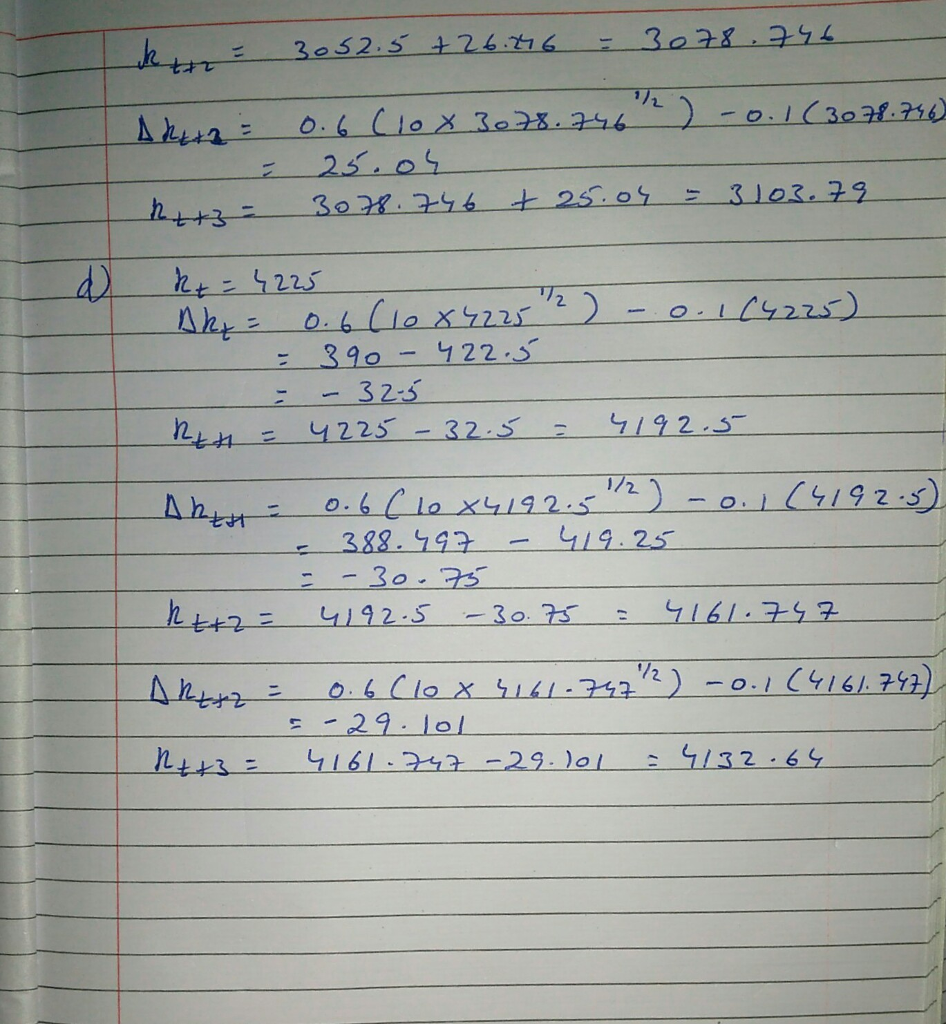 k_{t+2} = 3052.5 + 26.246 = 3078.746
Δk_{t+2} = 0.6 (10 × 3078.746^{1/2}) - 0.1 (3078.746)
= 25.04
k_{t+3} = 3078.746 + 25.04 = 3103.79
d) k_t = 4225
Δk_t = 0.6 (10 × 4225^{1/2}) - 0.1 (4225)
= 390 - 422.5
= - 32.5
k_{t+1} = 4225 - 32.5 = 4192.5
Δk_{t+1} = 0.6 (10 × 4192.5^{1/2}) - 0.1 (4192.5)
= 388.497 - 419.25
= - 30.75
k_{t+2} = 4192.5 - 30.75 = 4161.747
Δk_{t+2} = 0.6 (10 × 4161.747^{1/2}) - 0.1 (4161.747)
= - 29.101
k_{t+3} = 4161.747 - 29.101 = 4132.64